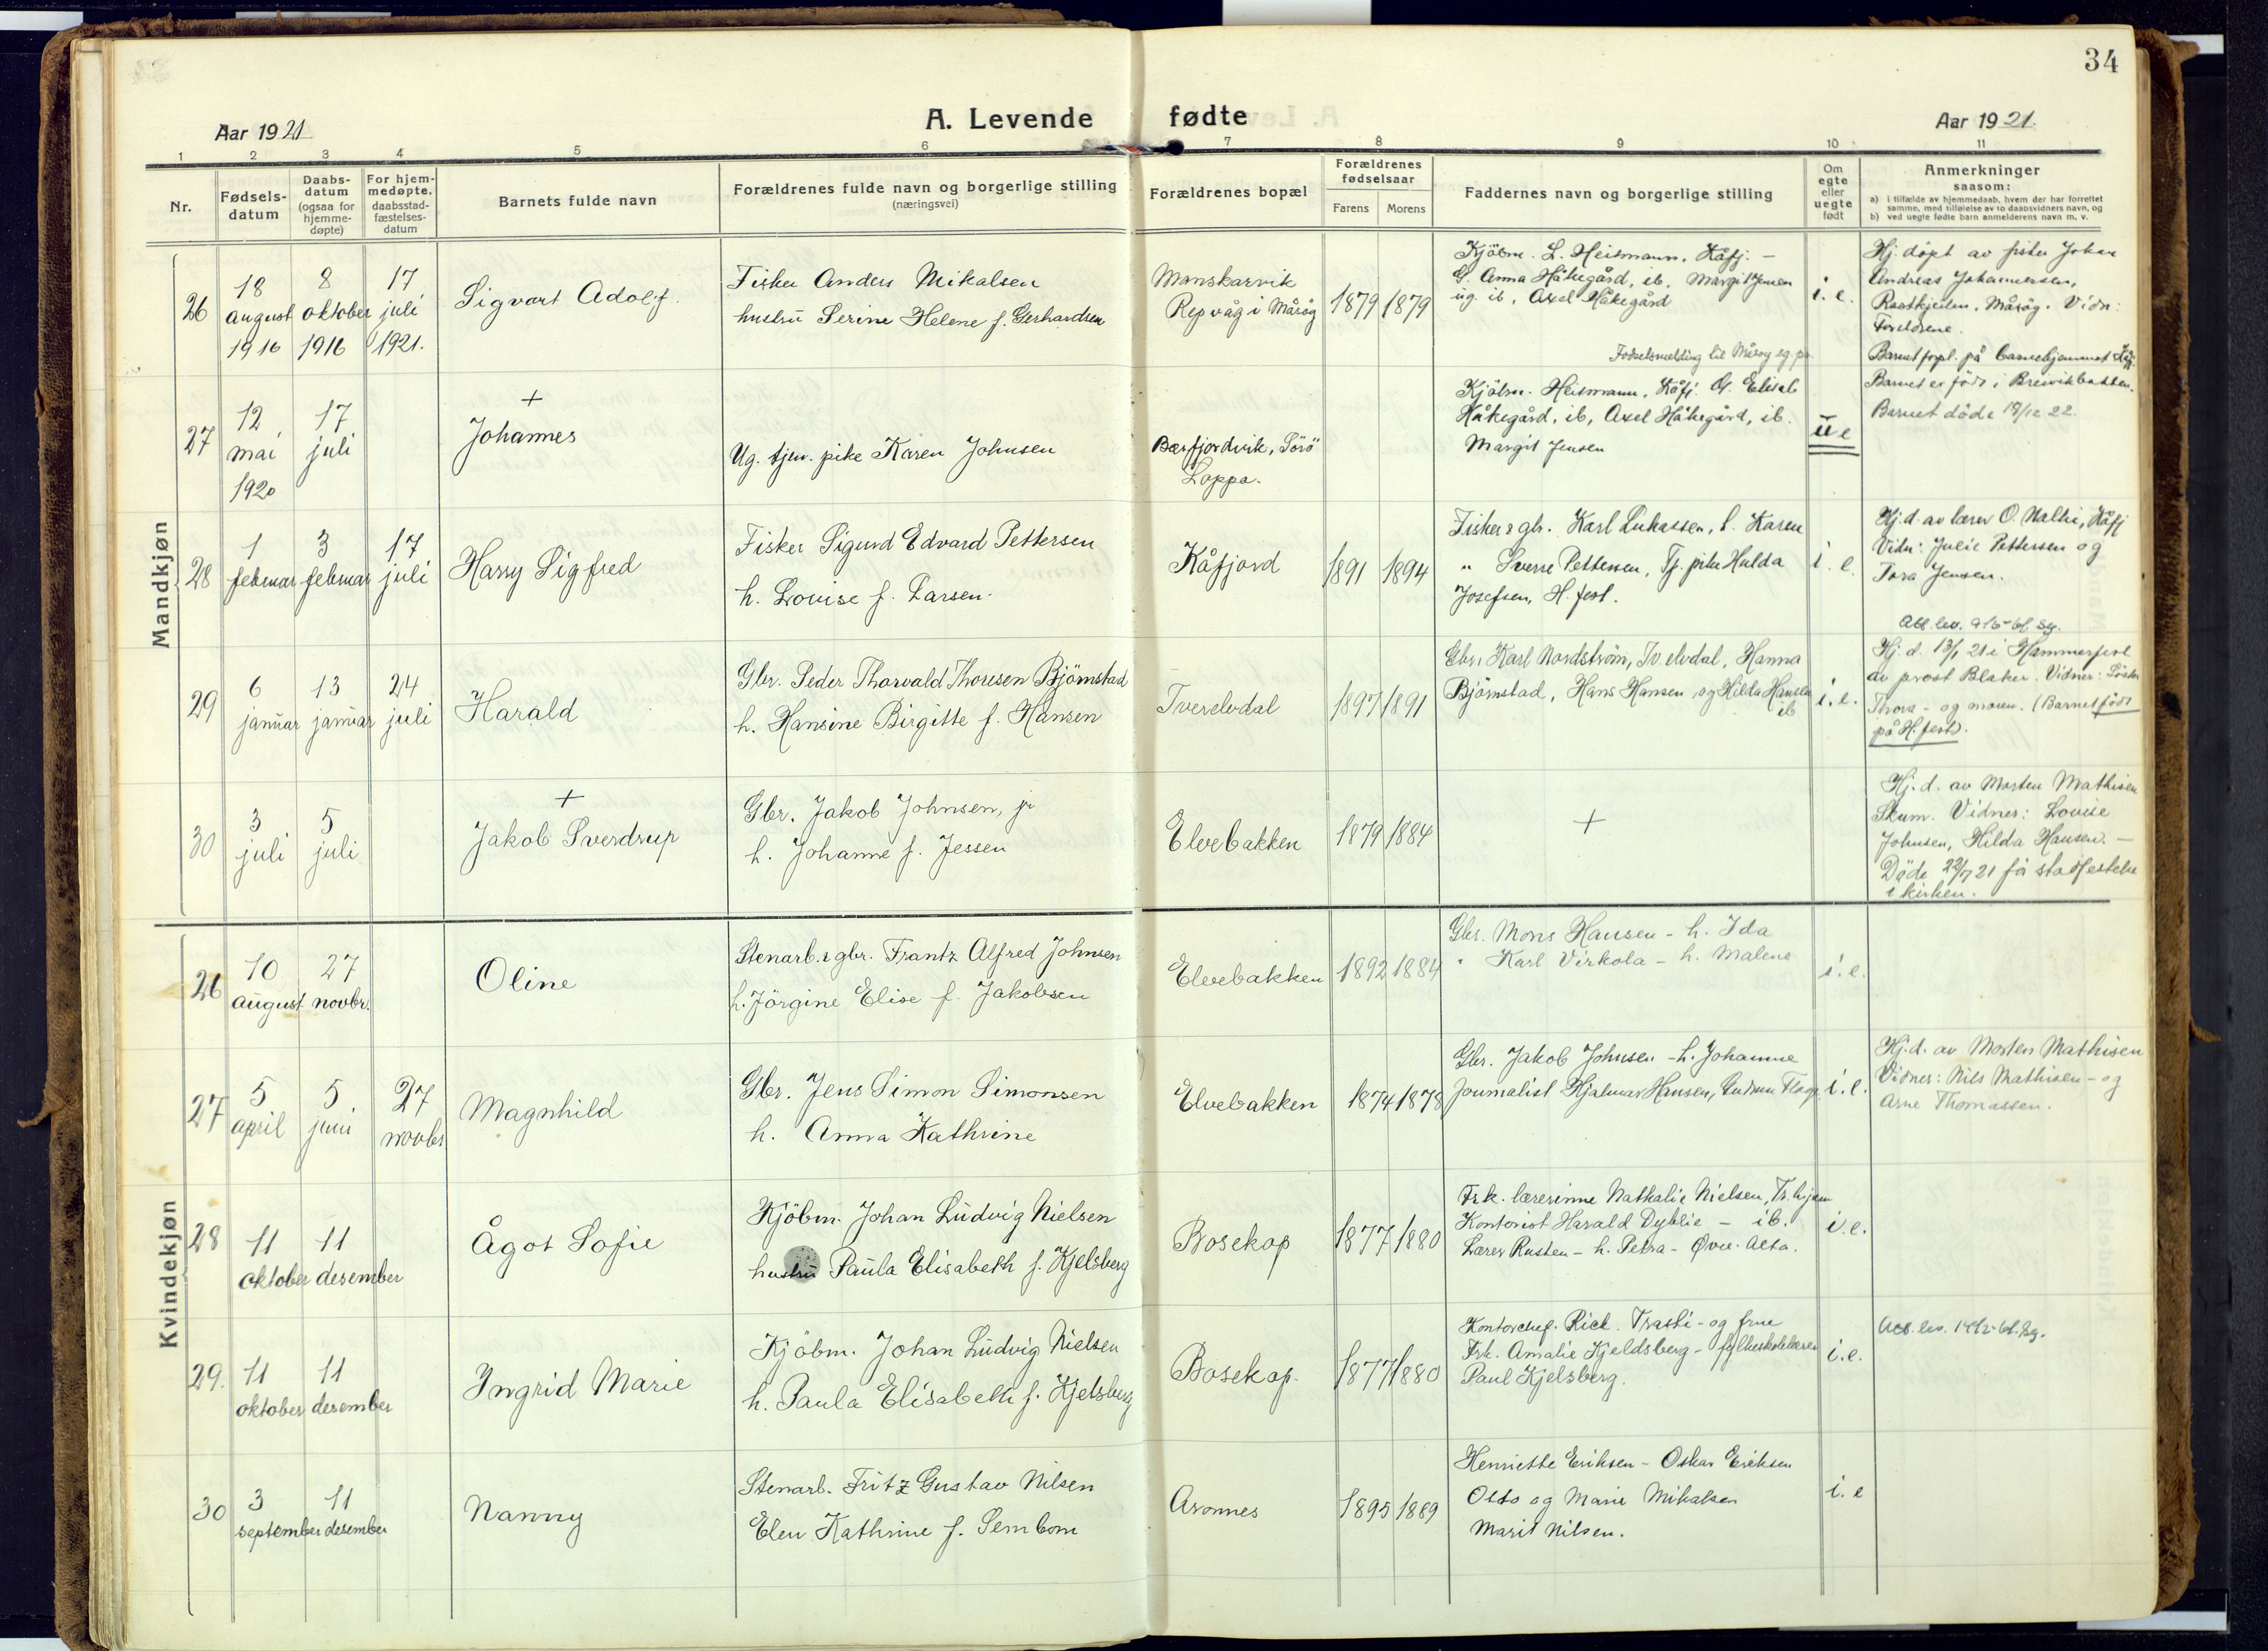 34
Aar 1921
A. Levende fødte
Aar 1921.
1 2 3 4 5 6 7 8 9 10 11
Nr.
Fødsels-
datum
Daabs-
datum
(ogsaa for
hjemme-
døpte)
For hjem-
medøpte.
daabsstad-
fæstelses-
datum
Barnets fulde navn
Forældrenes fulde navn og borgerlige stilling
(næringsvei)
Forældrenes bopæl
Forældrenes
fødselsaar
Farens Morens
Faddernes navn og borgerlige stilling
Om
egte
eller
uegte
født
Anmerkninger
saasom:
a) i tilfælde av hjemmedaab, hvem der har forrettet
samme, med tilføielse av to daabsvidners navn, og
b) ved uegte fødte barn anmelderens navn m. v.
Mandkjøn
26
18
august
1916
8
oktober
1916
17
juli
1921.
Sigvart Adolf.
Fisker Anders Mikalsen
hustru Serine Helene f. Gerhardsen
Manskarvik
Repvåg i Måsøy
1879 1879
Kjöbm. L. Heitmann, Kåfj. –
G. Anna Håkegård, ib, Margit Jensen
ug. ib, Axel Håkegård
Fødselsmelding til Måsøy
i. e.
Hj. døpt av fisker Johan
Andreas Johannessen,
Måsøy. Vidn:
Foreldrene.
Barnet på barnehjemmet
27
12
mai
1920
17
juli
+
Johannes
Ug. tjen. pike Karen Johnsen
Bærfjordvik, Sörö
Loppa.
Kjöbm. Heitmann, Kåfj. G.
Håkegård, ib, Axel Håkegård, ib.
Margit Jensen
u e
Barnet er född i Breivikbotten.
Barnet döde 18/12 22.
28
1
februar
3
februar
17
juli
Harry Sigfred
Fisker Sigurd Edvard Pettersen
h. Lovise f. Larsen.
Kåfjord
1891 1894
Fisker & gbr. Karl Lukassen, h. Karen
" Sverre Pettersen, Tj. pike Hulda
Josefsen, H. fest.
i. e.
Hj. d. av lærer O. Kåfj
Vidn: Julie Pettersen og
Tora Jensen.
29
6
januar
13
januar
24
juli
Harald
Gbr. Peder Thorvald Thoresen Björnstad
h. Hansine Birgitte f. Hansen
Tverelvdal
1897 1891
Gbr. Karl Nordström, Tv. elvdal, Hanna
Björnstad, Hans Hansen og Hilda Hansen
ib
i. e.
Hj. d. 13/1 21 i Hammerfest
av prost Blaker. Vidner:
Thora – og moren. (Barnet födt
på H. fest).
30
3
juli
5
juli
+
Jakob Sverdrup
Gbr. Jakob Johnsen, jr
h. Johanne f. Jessen
Elvebakken
1879 1884
+
Hj. d. av Morten Mathisen
Skum. Vidner: Lovise
Johnsen, Hilda Hansen. –
Döde 22/7 21 för stadfestelse
i kirken.
Kvindekjøn
26
10
august
27
novbr.
Oline
Stenarb. & gbr. Frantz Alfred Johnsen
h. Jörgine Elise f. Jakobsen
Elvebakken
1892 1884
Gbr. Mons Hansen – h. Ida
" Karl Virkola – h. Malene
i. e.
27
5
april
5
juni
27
novbr
Magnhild
Gbr. Jens Simon Simonsen
h. Anna Kathrine
Elvebakken
1874 1878
Gbr. Jakob Johnsen – h. Johanne
Journalist Hjalmar Hansen, Gudrun
i. e.
Hj. d. av Morten Mathisen
Vidner: Nils Mathisen – og
Arne Thomassen.
28
11
oktober
11
desember
Ågot Sofie
Kjöbm. Johan Ludvig Nielsen
hustru Paula Elisabeth f. Kjelsberg
Bosekop
1877 1880
Frk. lærerinne Nathalie Nielsen,
Kontorist Harald Dyblie – ib.
Lærer Rusten – h. Petra – Øvre Alta.
i. e.
29.
11
oktober
11
desember
Ingrid Marie
Kjöbm. Johan Ludvig Nielsen
h. Paula Elisabeth f. Kjelsberg
Bosekop.
1877 1880
Kontorchef. Rick. Trasti – og frue
Frk. Amalie Kjeldsberg – fylkesskolelærer
Paul Kjelsberg.
i. e.
30
3
september
11
desember
Nanny
Stenarb. Fritz Gustav Nilsen
Elen Kathrine f. Sembom
Aronnes
1895 1889
Henriette Eriksen – Oskar Eriksen
Otto og Marie Mikalsen
Marit Nilsen.
i. e